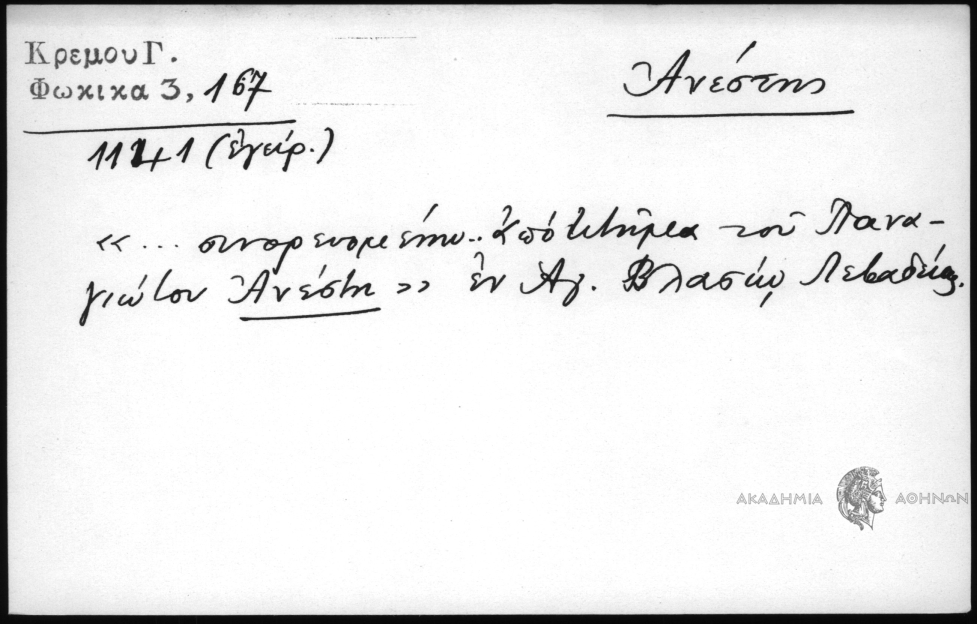 Κρεμου Γ.
Φωκικα 3, 167
Ἀνέστης
1141 (ἐγείρ.)
«... συνορευομένην .. ἀπὸ κτῆμα τοῦ Πανα-
γιώτου Ἀνέστη» ἐν Ἁγ. Βλασίῳ Λεβαδείας.
ΑΚΑΔΗΜΙΑ ΑΘΗΝΩΝ